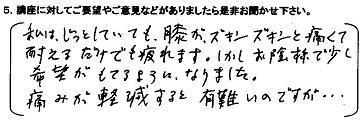 5. 講座に対してご要望やご意見などがありましたら是非お聞かせ下さい。
私は、じっとしていても、膝が、ズキンズキンと痛くて
耐えるだけでも疲れます。しかしお陰様で少し
希望がもてるように、なりました。
痛みが軽減すると有難いのですが…